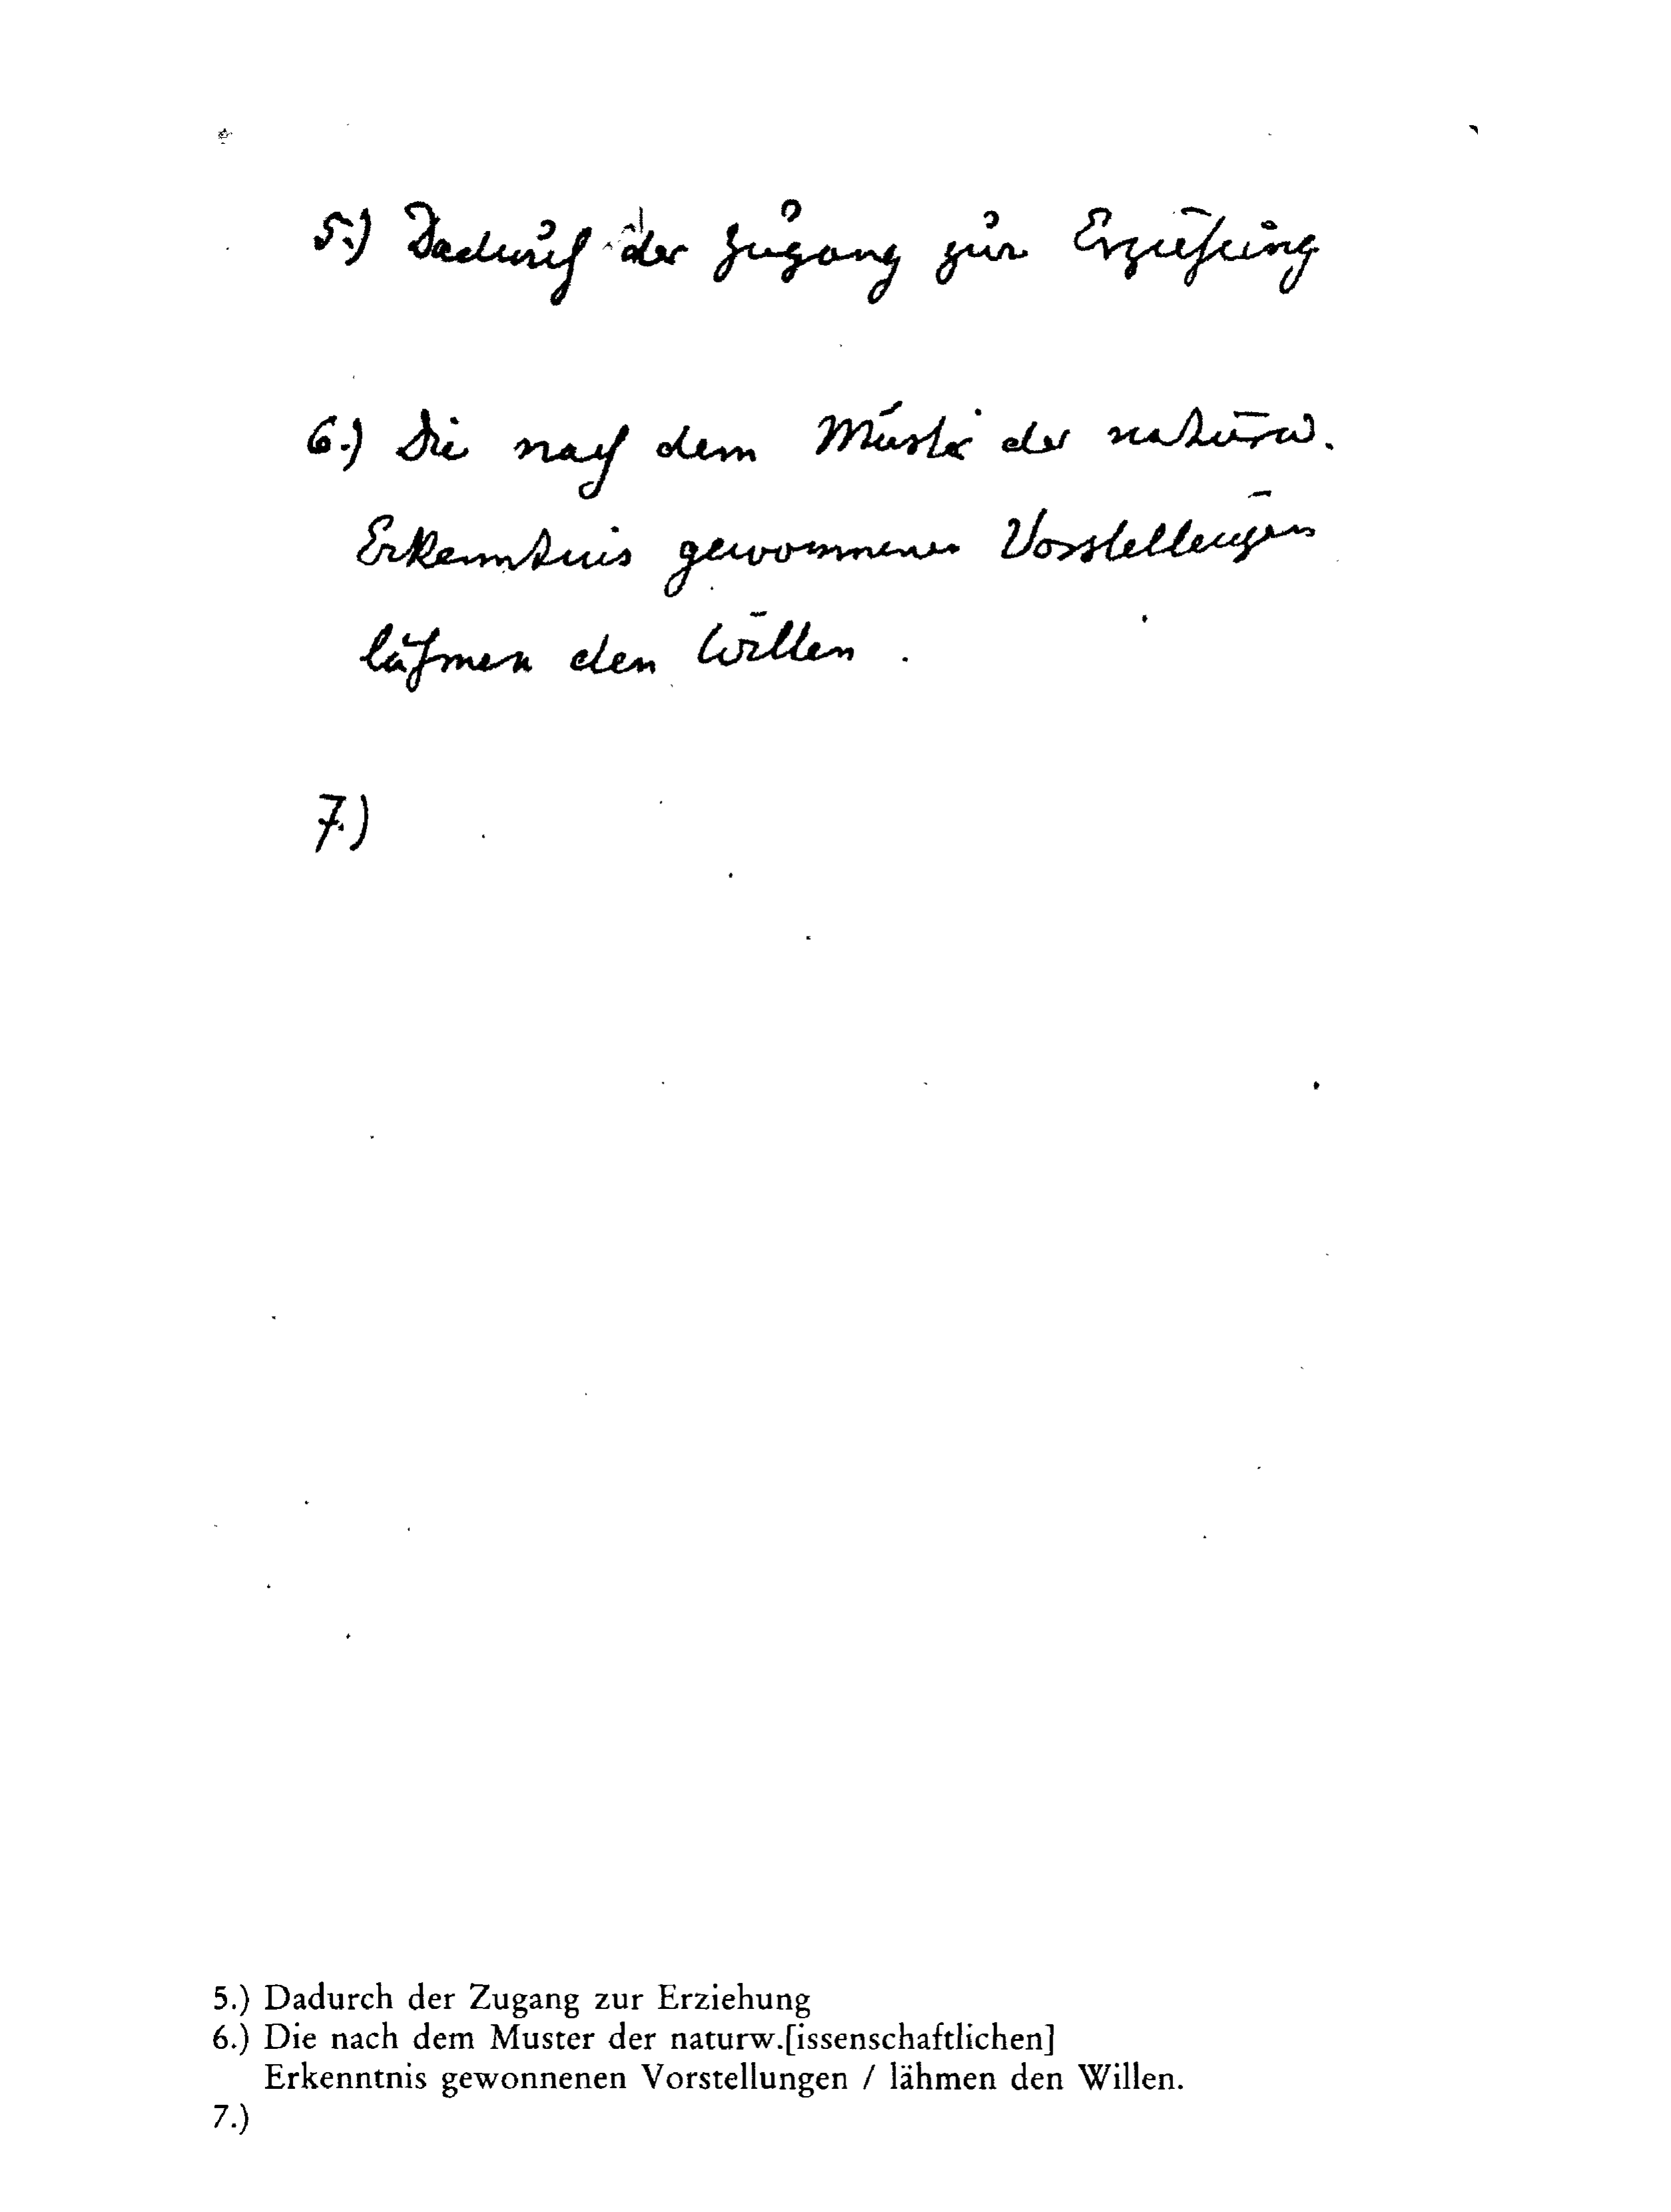 5.) Dadurch der Zugang zur Erziehung
6.) Die nach dem Muster der naturw.
Erkenntnis gewonnenen Vorstellungen
lähmen den Willen.
7.)
5.) Dadurch der Zugang zur Erziehung
6.) Die nach dem Muster der naturw.[issenschaftlichen]
Erkenntnis gewonnenen Vorstellungen / lähmen den Willen.
7.)